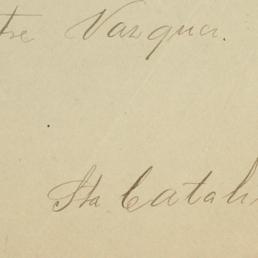 tre Vazquez.
Sta Catali